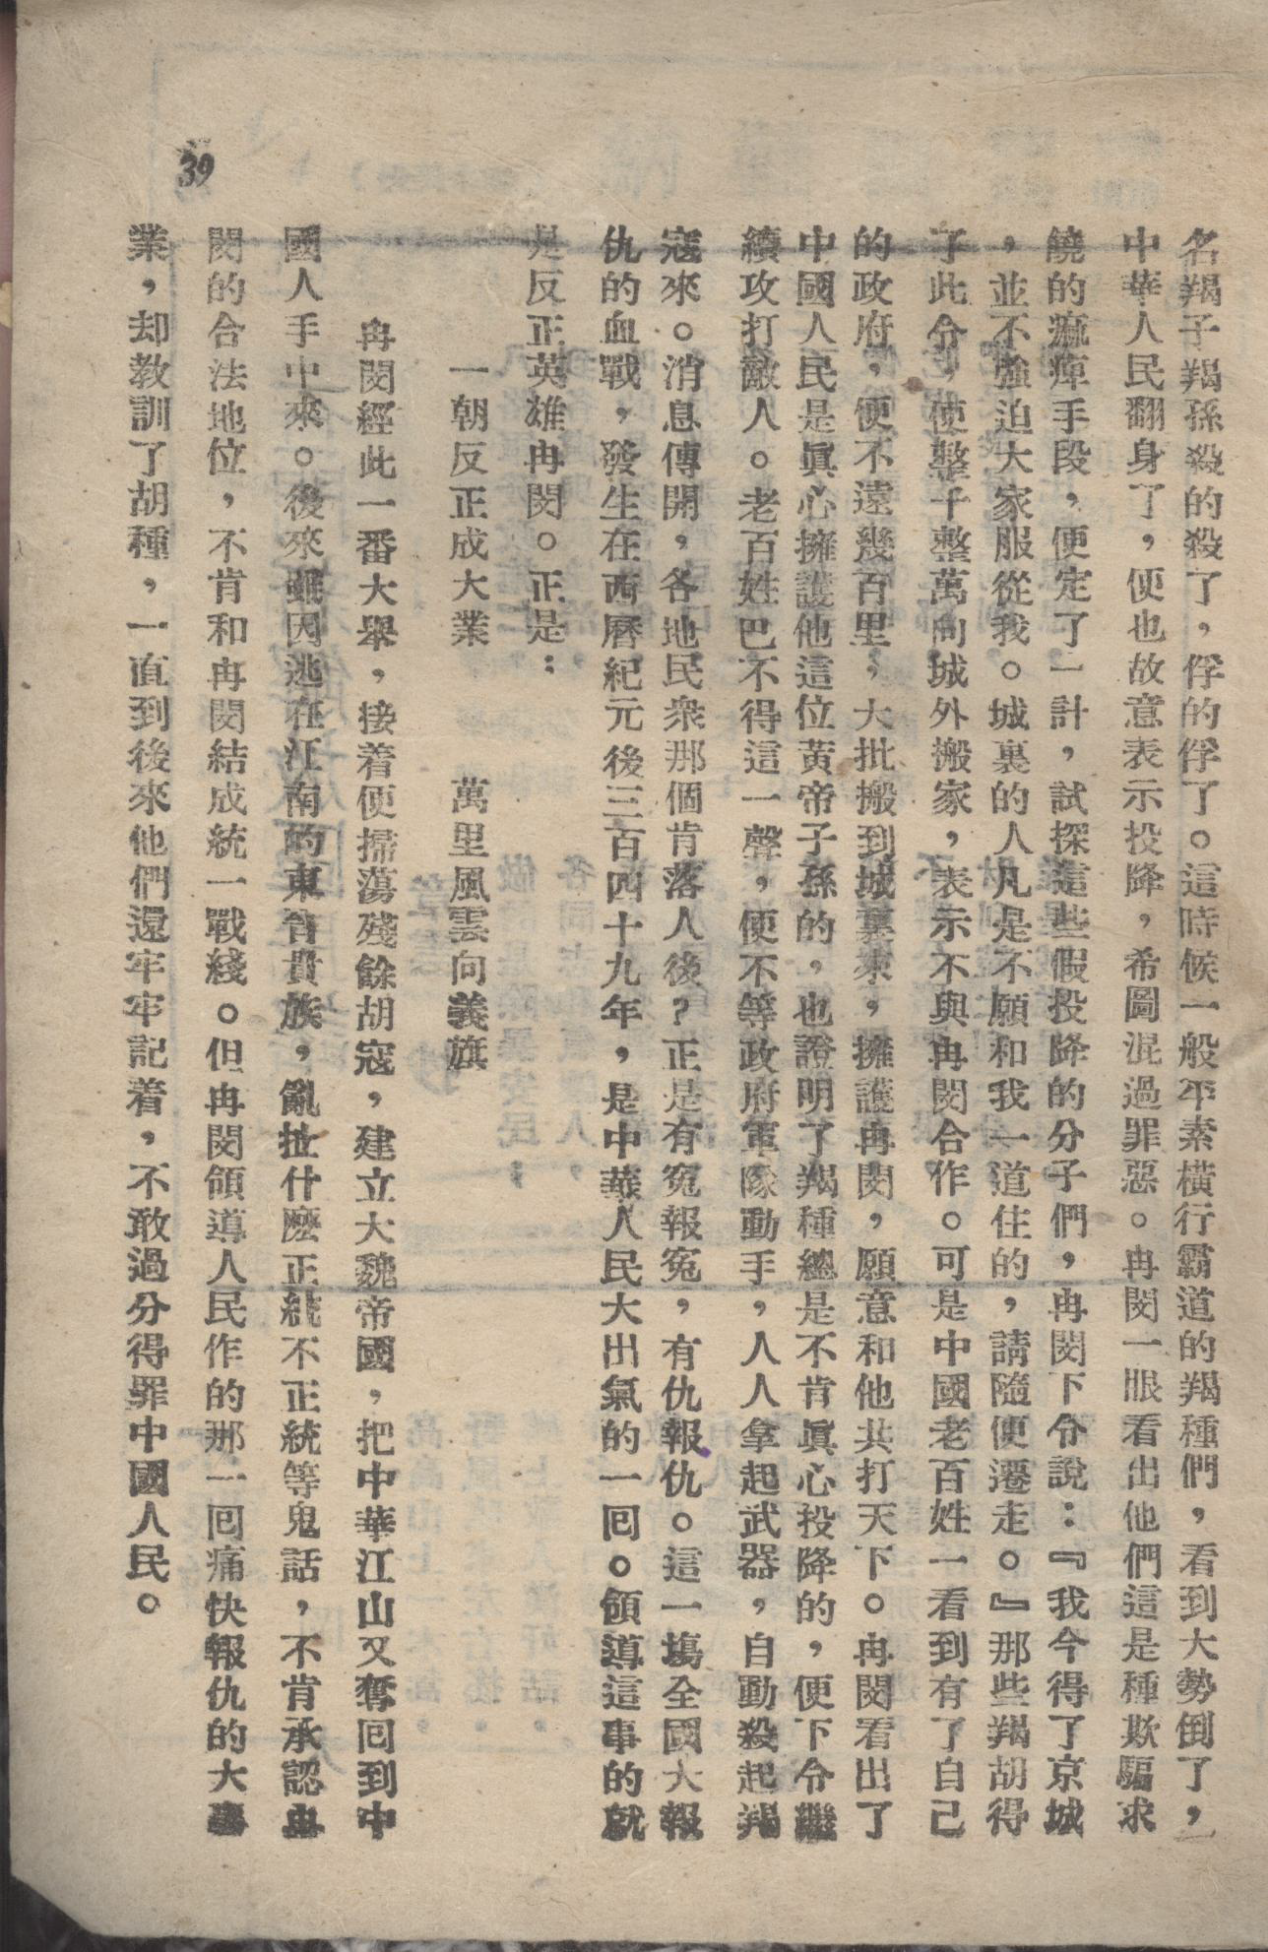 名羯子羯孫殺的殺了，俘的俘了。這時候一般平素橫行霸道的羯種們，看到大勢倒了，
中華人民翻身了，便也故意表示投降，希圖混過罪惡。冉閔一眼看出他們這是種欺騙求
饒的痲痺手段，便定了一計，試探這些假投降的分子們，冉閔下令說：『我今得了京城
，並不強迫大家服從我。城裏的人凡是不願和我一道住的，請隨便遷走。』那些羯胡得
了此令，便整千整萬向城外搬家，表示不與冉閔合作。可是中國老百姓一看到有了自己
的政府，便不遠幾百里，大批搬到城裏來，擁護冉閔，願意和他共打天下。冉閔看出了
中國人民是眞心擁護他這位黄帝子孫的，也證明了羯種總是不肯眞心投降的，便下令繼
續攻打敵人。老百姓巴不得這一聲，便不等政府軍隊動手，人人拿起武器，自動殺起羯
寇來。消息傳開，各地民衆那個肯落人後？正是有冤報冤，有仇報仇。這一塲全國大報
仇的血戰，發生在西曆紀元後三百四十九年，是中華人民大出氣的一囘。領導這事的就
是反正英雄冉閔。正是：
一朝反正成大業　　萬里風雲向義旗
冉閔經此一番大舉，接着便掃蕩殘餘胡寇，建立大魏帝國，把中華江山又奪囘到中
國人手中來。後來雖因逃在江南的東晉貴族，亂扯什麽正統不正統等鬼話，不肯承認冉
閔的合法地位，不肯和冉閔結成統一戰綫。但冉閔領導人民作的那一囘痛快報仇的大事
業，却教訓了胡種，一直到後來他們還牢牢記着，不敢過分得罪中國人民。
39